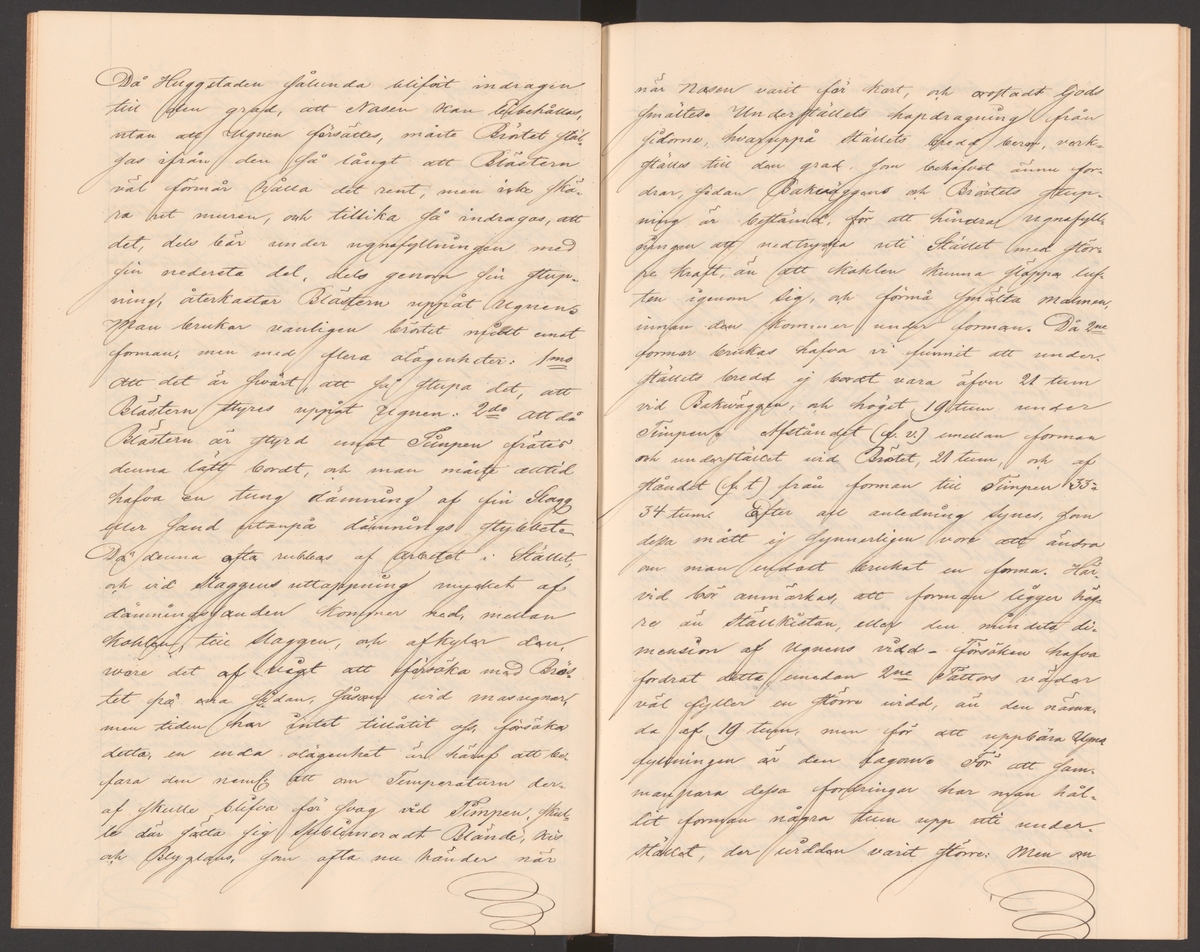 Då Huggstaden sålunda blifvit indragen
til den grad, att Nasen kan bibehållas,
utan att Ugnen försättes, måste Bröstet stäl-
las ifrån den så långt att Blästern
väl förmår hålla det rent, men icke skä-
ra ut muren, och tillika så indragas, att
det, dels bär under ugnsfyllningen med
sin nedersta del, dels genom sin stup-
ning, återkastar Blästern uppåt Ugnen.
Man brukar vanligen bröstet midt emot
forman, men med flera olägenheter: 1mo
Att det är svårt, att så stupa det, att
Blästern styres uppåt Ugnen: 2do Att då
Blästern är styrd emot Timpen fräter
denna lätt bordt, och man måste alltid
hafva en tung dämning af fin Slagg
eller sand utanpå dämnings stybbet.
Då denna ofta rubbas af arbetet i Stället,
och vid Slaggens uttappning mycket af
dämningssanden kommer ned, mellan
kohlen, till Slaggen, och afkyler den,
wore det af vigt att försöka med Brös-
tet på ena sidan, såsom vid masugnar,
men tiden har intet tillåtit oss, försöka
detta, en enda olägenhet är häraf att be-
fara den neml. att om Temperaturn der-
af skulle blifva för svag vid Timpen, skul-
le där sätta sig sublimeradt Blände, Kis
och Blyglans, som ofta nu händer när
när Nasen varit för kort, och orostadt Gods
smältes. Underställets hopdragning från
sidorne, hvaruppå Ställets bredd beror, verk-
ställes till den grad, som behöfvet ännu for-
drar, sedan Bakväggens och Bröstets stup-
ning är bestämd, för att hindra ugnsfyll-
ningen att nedtrycka uti Stället med stör-
re kraft, än att Kohlen kunna släppa luf-
ten igenom sig, och förmå smälta malmen,
innan den kommer under forman. Då 2ne
formar brukas hafva vi funnit att under-
ställets bredd ej bordt vara öfver 21 tum
vid Bakväggen, och högst 19 tum under
Timpen. Afståndet (f. v.) emellan forman
och understället vid Bröstet, 21 tum, och af
ståndet (f. t) från forman til Timpen 33 à
34 tum. Efter all anledning synes, som
dessa mått ej synnerligen vore att ändra
om man endast brukat en forma. Här-
vid bör anmärkas, att forman ligger hög-
re än Ställkistan, eller den mindsta di-
mension af Ugnens vidd – Försöken hafva
fordrat detta emedan 2ne Tättors väder
väl fyller en större vidd, än den nämn-
da af 19 tum, men för att uppbära Ugns
fyllningen är den lagom. För att sam-
manpara dessa fordringar har man hål-
lit forman några tum upp uti under-
Stället, der vidden varit större: Men om